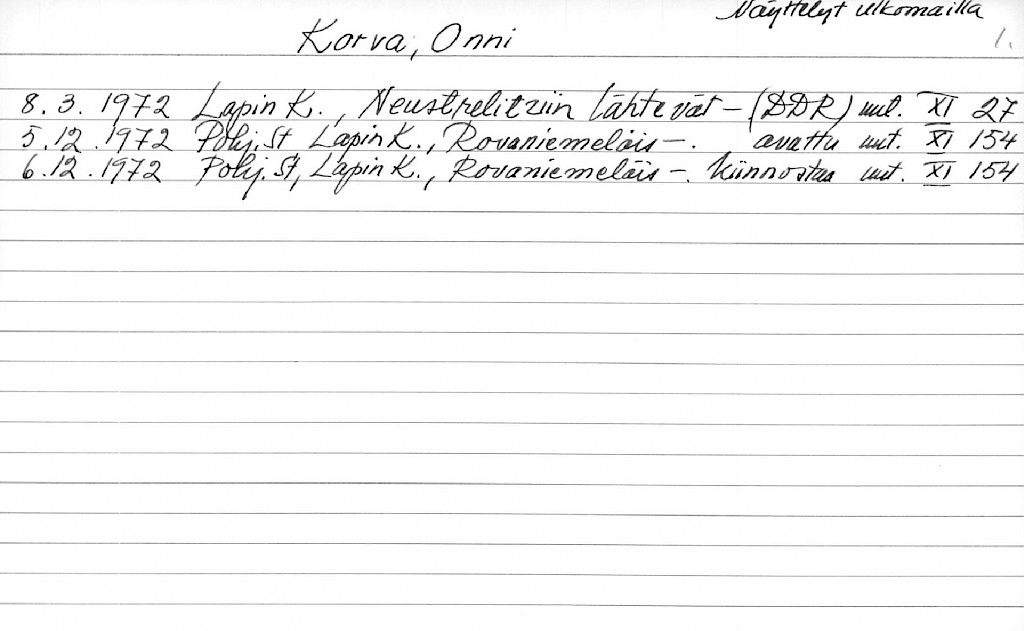 Näyttelyt ulkomailla
1.
Korva, Onni
8.3.1972 Lapin K., Neustrelitziin lähtevät – (DDR) uut. XI 27
5.12.1972 Pohj.St Lapin K., Rovaniemeläis –. avattu uut. XI 154
6.12.1972 Pohj.St, Lapin K., Rovaniemeläis –. kiinnostaa uut. XI 154